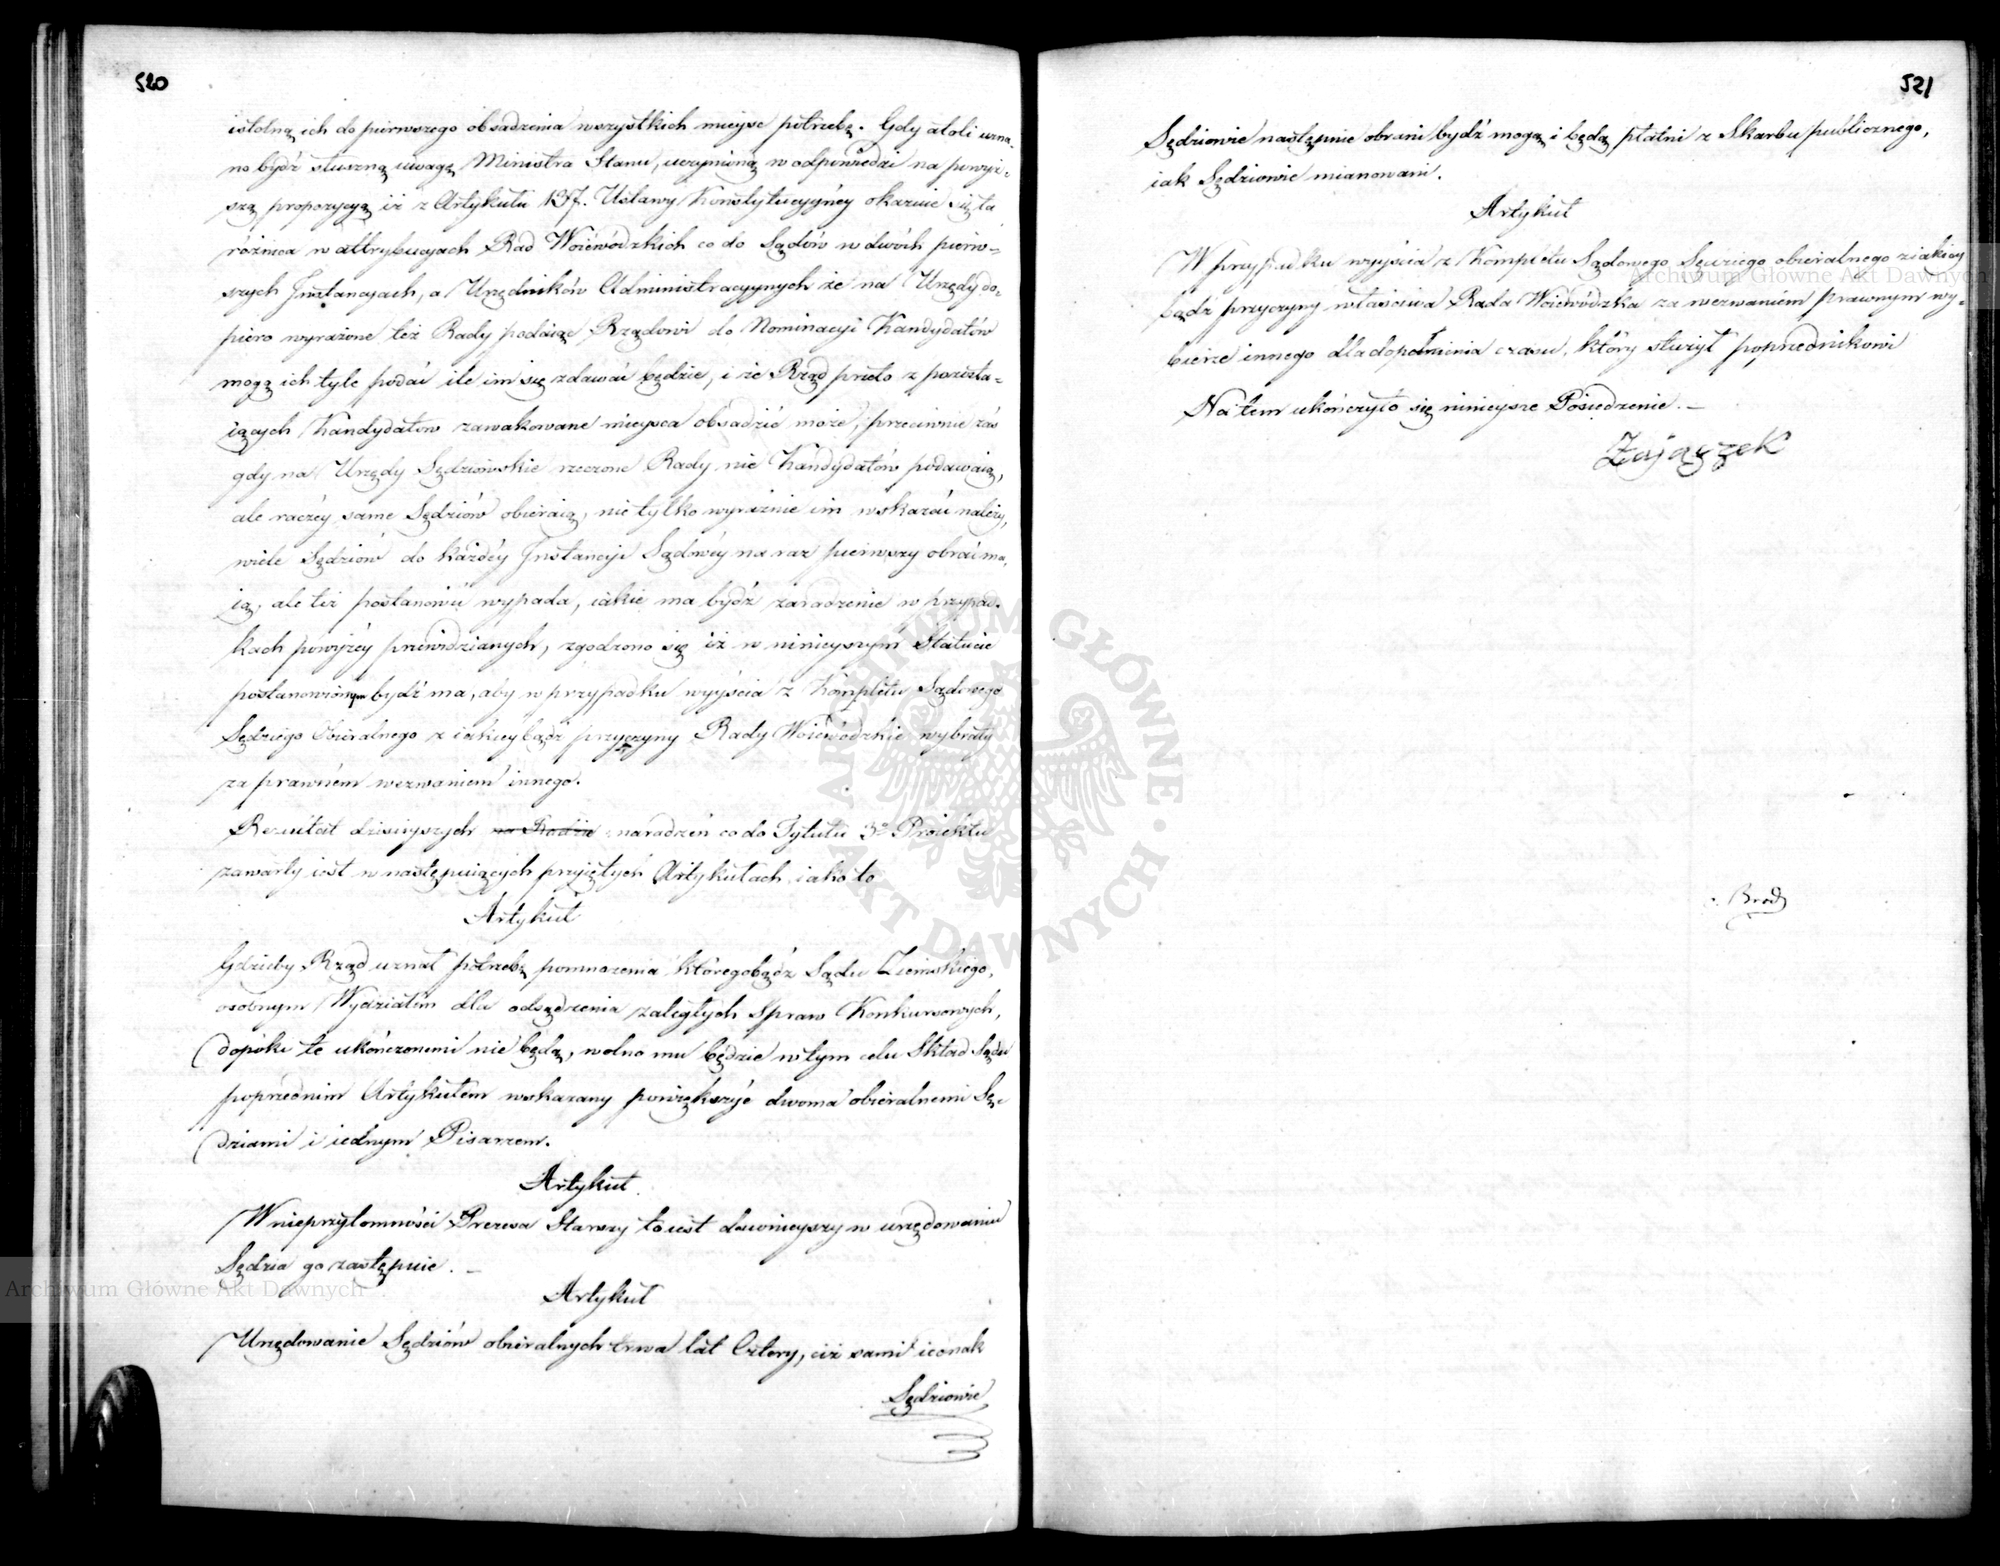 520
istotną ich do pierwszego obsadzenia wszystkich mieysc potrzebę. Gdy atoli uzna-
no bydź słuszną uwagę Ministra Stanu, uczynioną w odpowiedzi na powyż-
szą propozycyą iż z Artykułu 137. Ustawy Konstytucyyney okazuie się ta
różnica w attrybucyach Rad Woiewódzkich co do Sądów w dwóch pierw-
szych Instancyach, a Urzędników Administracyynych że na Urzędy do-
piero wyrażone też Rady podaiąc Rządowi do Nominacyi Kandydatów
mogą ich tyle podać ile im się zdawać będzie, i że Rząd przeto z pozosta-
iących Kandydatów zawakowane mieysca obsadzić może, przeciwnie zaś
gdy na Urzędy Sędziowskie rzeczone Rady nie Kandydatów podawaią,
ale raczey same Sędziów obieraią, nie tylko wyraźnie im wskazać należy,
wiele Sędziów do każdey Instancyi Sądowey na raz pierwszy obrać ma-
ią, ale też postanowić wypada, iakie ma bydź zaradzenie w przypad-
kach powyżey przewidzianych, zgodzono się iż w ninieyszym Statucie
postanowionym bydź ma, aby w przypadku wyyścia z Kompletu Sądowego
Sędziego Obieralnego z iakieybądź przyczyny Rady Woiewódzkie wybrały
za prawnem wezwaniem innego.
Rezultat dzisieyszych na Radzie naradzeń co do Tytułu 3o Proiektu
zawarty iest w następuiących przyiętych Artykułach iako to
Artykuł
Gdzieby Rząd uznał potrzebę pomnożenia któregobądź Sądu Ziemskiego,
osobnym Wydziałem dla odsądzenia zaległych Spraw Konkursowych,
dopóki te ukończonemi nie będą, wolno mu będzie w tym celu Skład Sądu
poprzednim Artykułem wskazany powiększyć dwoma obieralnemi Sę-
dziami i iednym Pisarzem.
Artykuł
W nieprzytomności Prezesa Starszy to iest dawnieyszy w urzędowaniu
Sędzia go zastępuie. _
Artykuł
Urzędowanie Sędziów obieralnych trwa lat Cztery, ciż sami iednak
Sędziowie
521
Sędziowie następnie obrani bydź mogą i będą płatni z Skarbu publicznego,
iak Sędziowie mianowani.
Artykuł
W przypadku wyyścia z Kompletu Sądowego Sędziego obieralnego z iakiey
bądź przyczyny właściwa Rada Woiewódzka za wezwaniem prawnym wy-
bierze innego dla dopełnienia czasu, który służył poprzednikowi
Na tem ukończyło się ninieysze Posiedzenie. _
Zajączek
Archiwum Główne Akt Dawnych
ARCHIWUM GŁÓWNE AKT DAWNYCH
Archiwum Główne Akt Dawnych